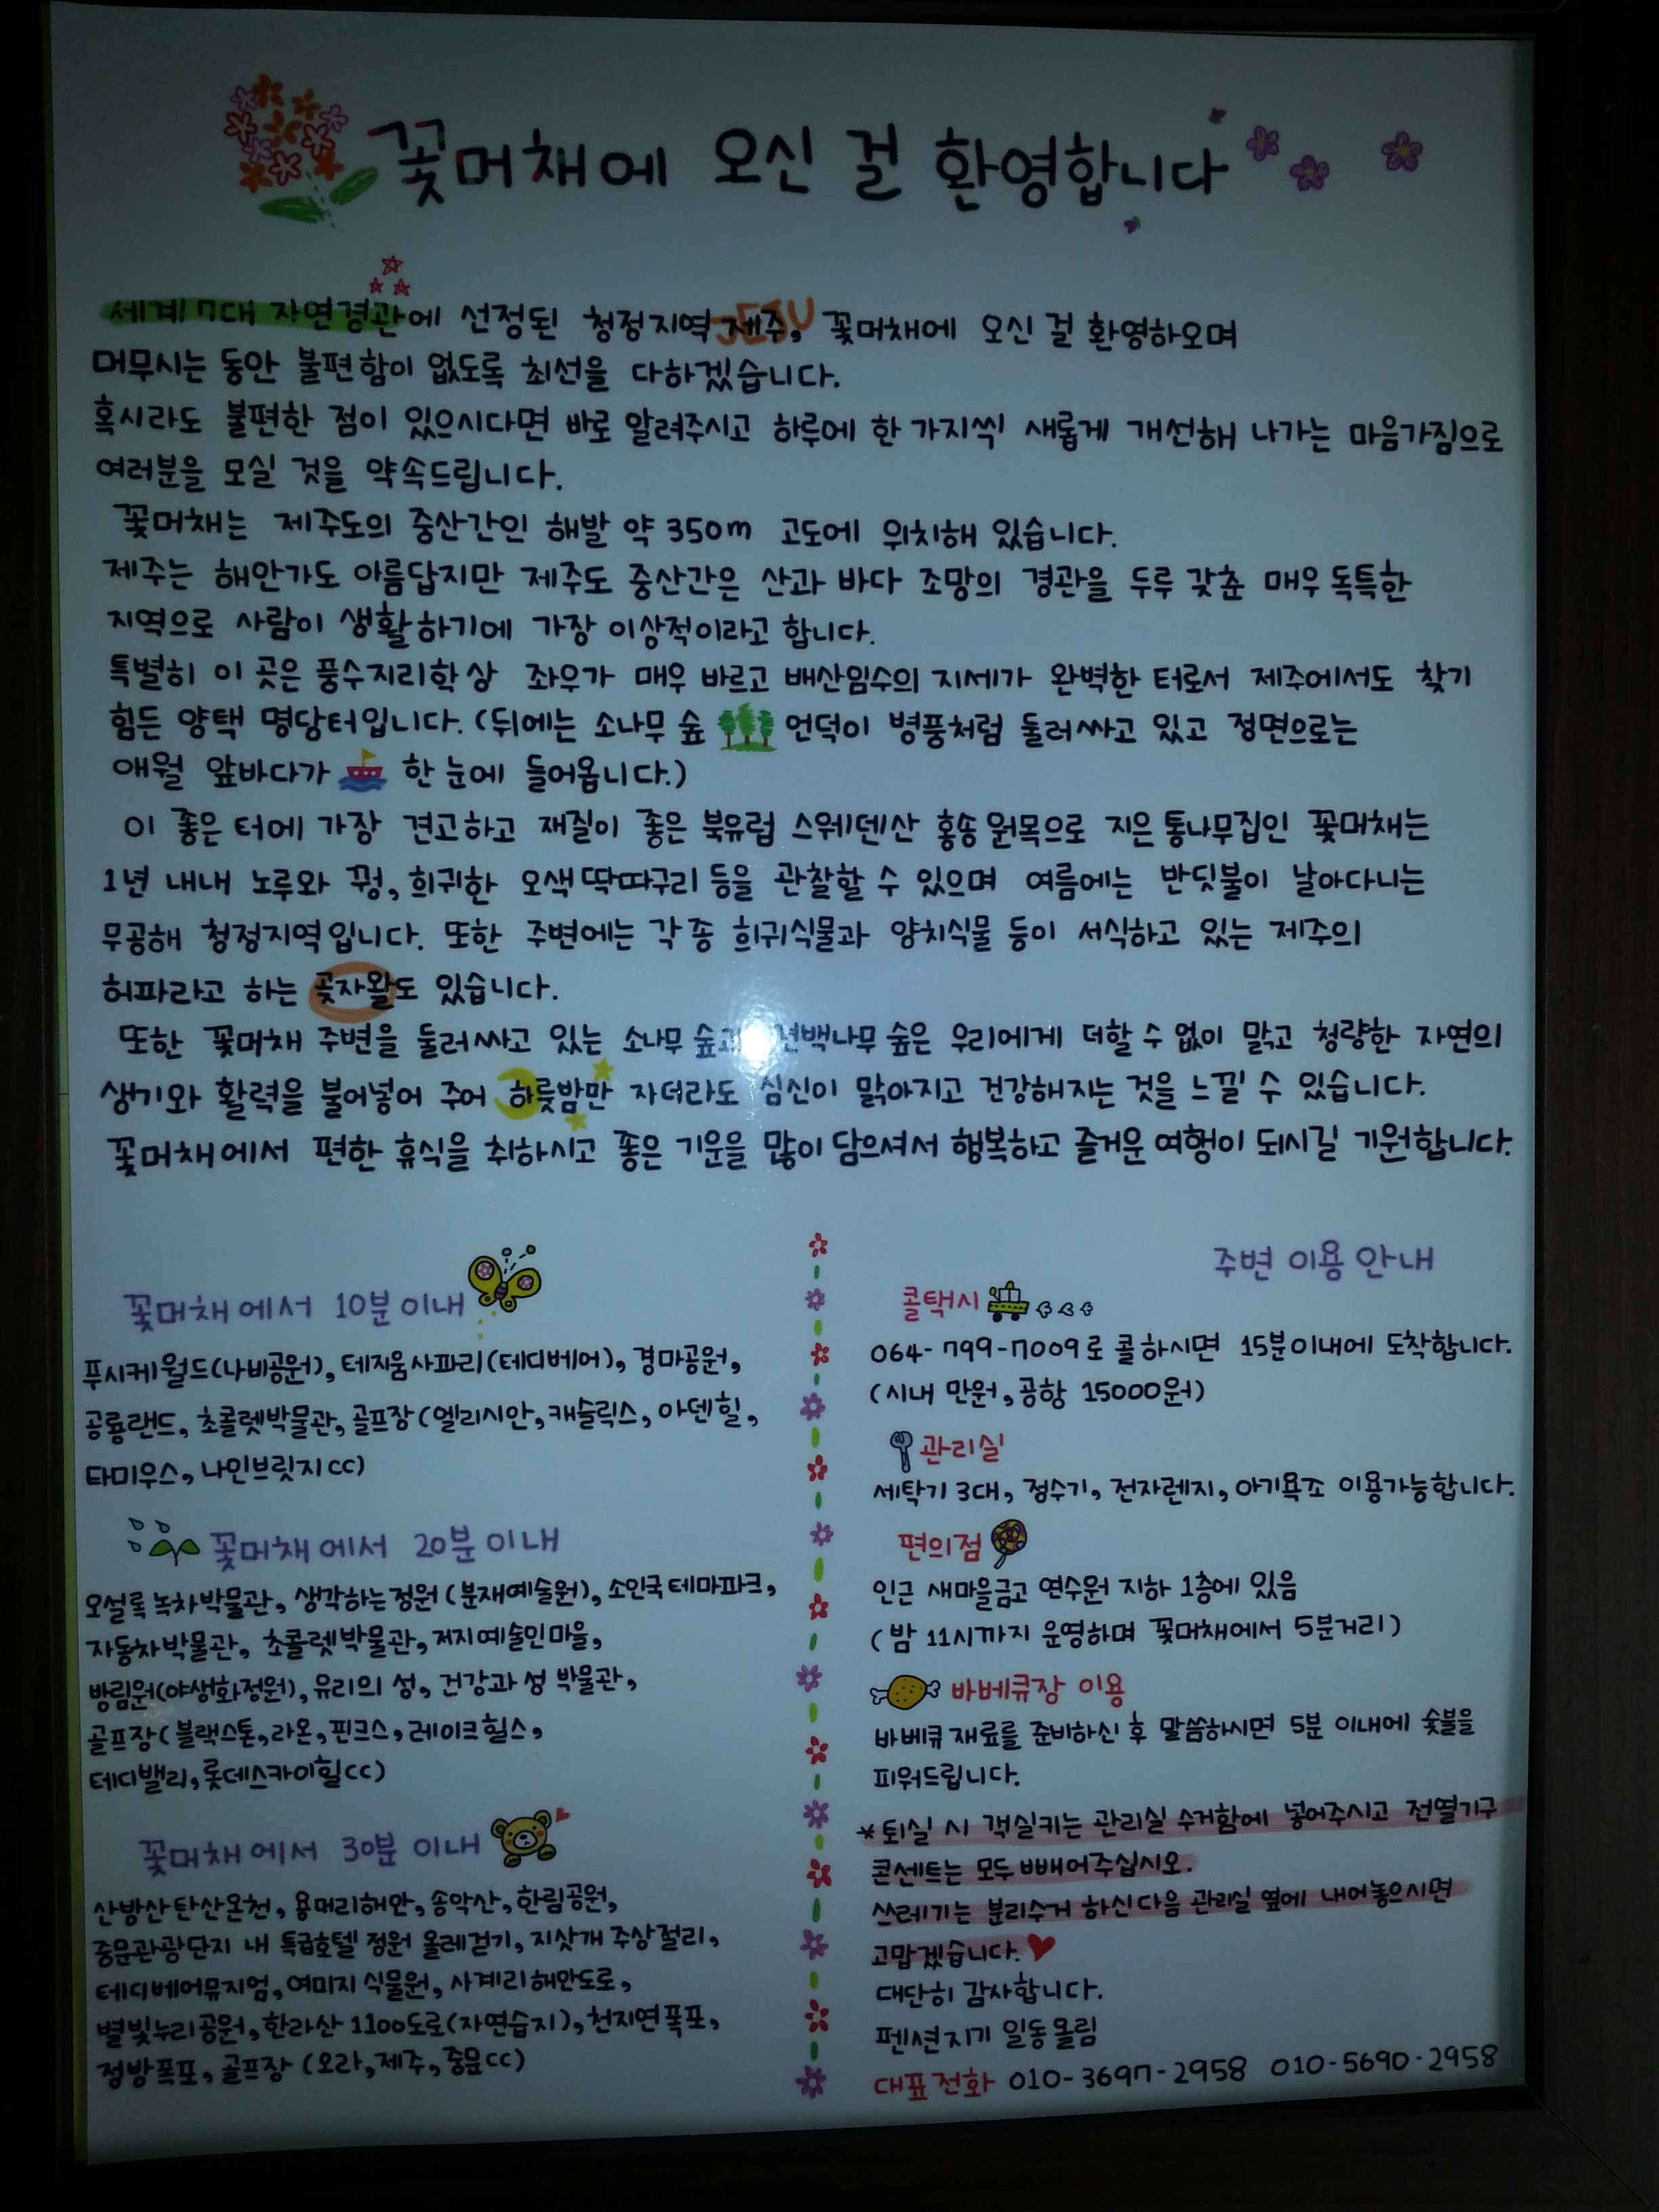 꽃머채에 오신 걸 환영합니다
세계 7대 자연경관에 선정된 청정지역 제주, 꽃머채에 오신 걸 환영하오며
JEJU
머무시는 동안 불편함이 없도록 최선을 다하겠습니다.
혹시라도 불편한 점이 있으시다면 바로 알려주시고 하루에 한 가지씩 새롭게 개선해 나가는 마음가짐으로
여러분을 모실 것을 약속드립니다.
꽃머채는 제주도의 중산간인 해발 약 350m 고도에 위치해 있습니다.
제주는 해안가도 아름답지만 제주도 중산간은 산과 바다 조망의 경관을 두루 갖춘 매우 독특한
지역으로 사람이 생활하기에 가장 이상적이라고 합니다.
특별히 이 곳은 풍수지리학상 좌우가 매우 바르고 배산임수의 지세가 완벽한 터로서 제주에서도 찾기
힘든 양택 명당터입니다. (뒤에는 소나무 숲 언덕이 병풍처럼 둘러싸고 있고 정면으로는
애월 앞바다가 한 눈에 들어옵니다.)
이 좋은 터에 가장 견고하고 재질이 좋은 북유럽 스웨덴산 홍송 원목으로 지은 통나무집인 꽃머채는
1년 내내 노루와 꿩, 희귀한 오색딱따구리 등을 관찰할 수 있으며 여름에는 반딧불이 날아다니는
무공해 청정지역입니다. 또한 주변에는 각종 희귀식물과 양치식물 등이 서식하고 있는 제주의
허파라고 하는 곶자왈도 있습니다.
또한 꽃머채 주변을 둘러싸고 있는 소나무 숲과 편백나무 숲은 우리에게 더할 수 없이 맑고 청량한 자연의
생기와 활력을 불어넣어 주어 하룻밤만 자더라도 심신이 맑아지고 건강해지는 것을 느낄 수 있습니다.
꽃머채에서 편한 휴식을 취하시고 좋은 기운을 많이 담으셔서 행복하고 즐거운 여행이 되시길 기원합니다.
꽃머채에서 10분이내
푸시케월드(나비공원), 테지움사파리(테디베어), 경마공원,
공룡랜드, 초콜렛박물관, 골프장(엘리시안, 캐슬릭스, 아덴힐,
타미우스, 나인브릿지CC)
꽃머채에서 20분이내
오설록 녹차박물관, 생각하는정원(분재예술원), 소인국테마파크,
자동차박물관, 초콜렛박물관, 저지예술인마을,
방림원(야생화정원), 유리의 성, 건강과 성 박물관,
골프장(블랙스톤, 라온, 핀크스, 레이크힐스,
테디밸리, 롯데스카이힐CC)
꽃머채에서 30분이내
산방산탄산온천, 용머리해안, 송악산, 한림공원,
중문관광단지 내 특급호텔 정원 올레걷기, 지삿개 주상절리,
테디베어뮤지엄, 여미지 식물원, 사계리해안도로,
별빛누리공원, 한라산 1100도로(자연습지), 천지연폭포,
정방폭포, 골프장 (오라, 제주, 중문CC)
주변 이용 안내
콜택시
064-799-7009로 콜하시면 15분이내에 도착합니다.
(시내 만원, 공항 15000원)
관리실
세탁기 3대, 정수기, 전자렌지, 아기욕조 이용가능합니다.
편의점
인근 새마을금고 연수원 지하 1층에 있음
(밤 11시까지 운영하며 꽃머채에서 5분거리)
바베큐장 이용
바베큐 재료를 준비하신 후 말씀하시면 5분 이내에 숯불을
피워드립니다.
*퇴실 시 객실키는 관리실 수거함에 넣어주시고 전열기구
콘센트는 모두 빼어주십시오.
쓰레기는 분리수거 하신다음 관리실 옆에 내어놓으시면
고맙겠습니다.
대단히 감사합니다.
펜션지기 일동 올림
대표전화 010-3697-2958 010-5690-2958